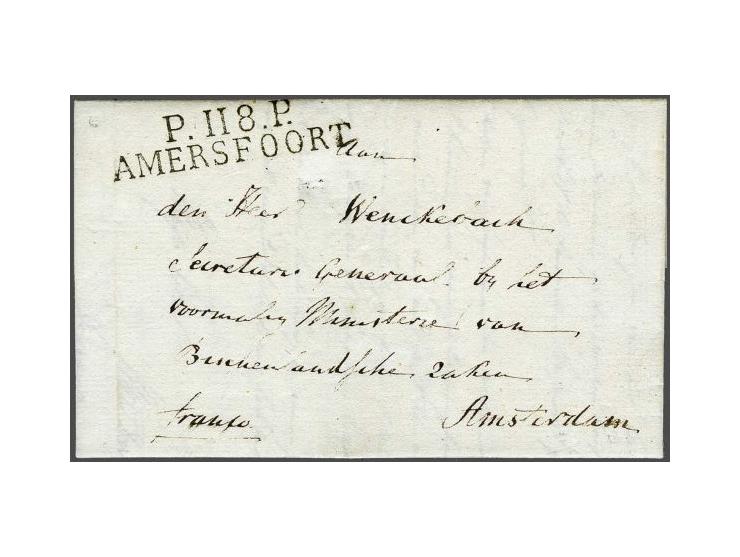 P.118.P.
AMERSFOORT
Aan
den Heer Wenckebach
Secretaris Generaal by het
voormalig Ministerie van
Binnenlandsche zaken
franco
Amsterdam